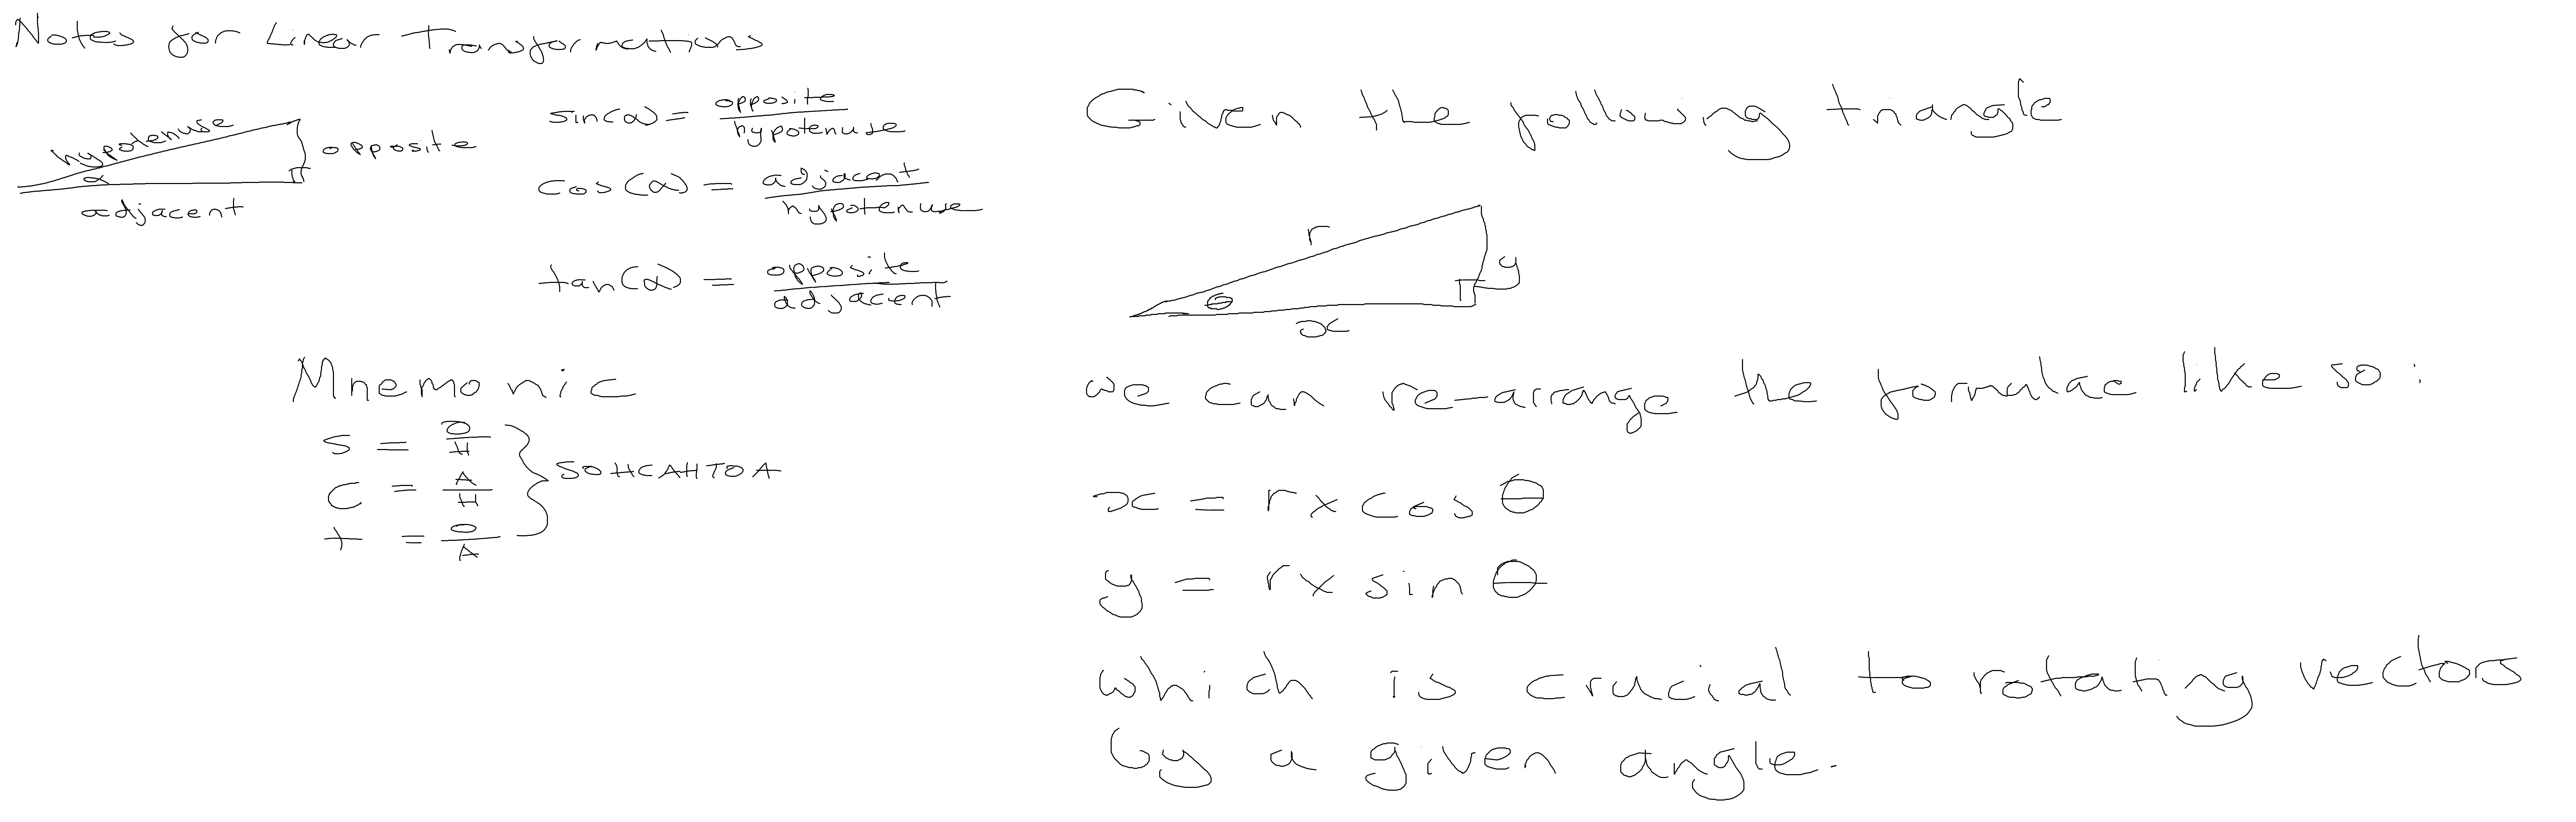 Notes for Linear Transformations
hypotenuse
opposite
α
adjacent
sin(α) = opposite / hypotenuse
cos(α) = adjacent / hypotenuse
tan(α) = opposite / adjacent
Mnemonic
S = O / H
C = A / H
t = O / A
SOHCAHTOA
Given the following triangle
r
y
θ
x
we can re-arrange the formulae like so:
x = r × cos θ
y = r × sin θ
which is crucial to rotating vectors
by a given angle.